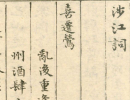 涉江詞
喜遷鶯
亂後重逢
州酒肆